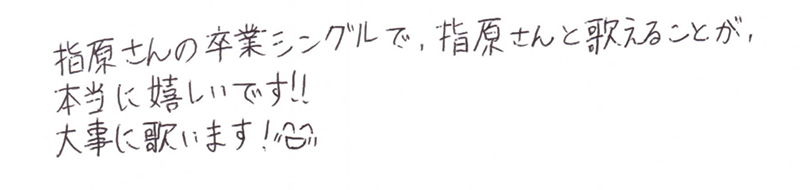 指原さんの卒業シングルで,指原さんと歌えることが,
本当に嬉しいです!!
大事に歌います!